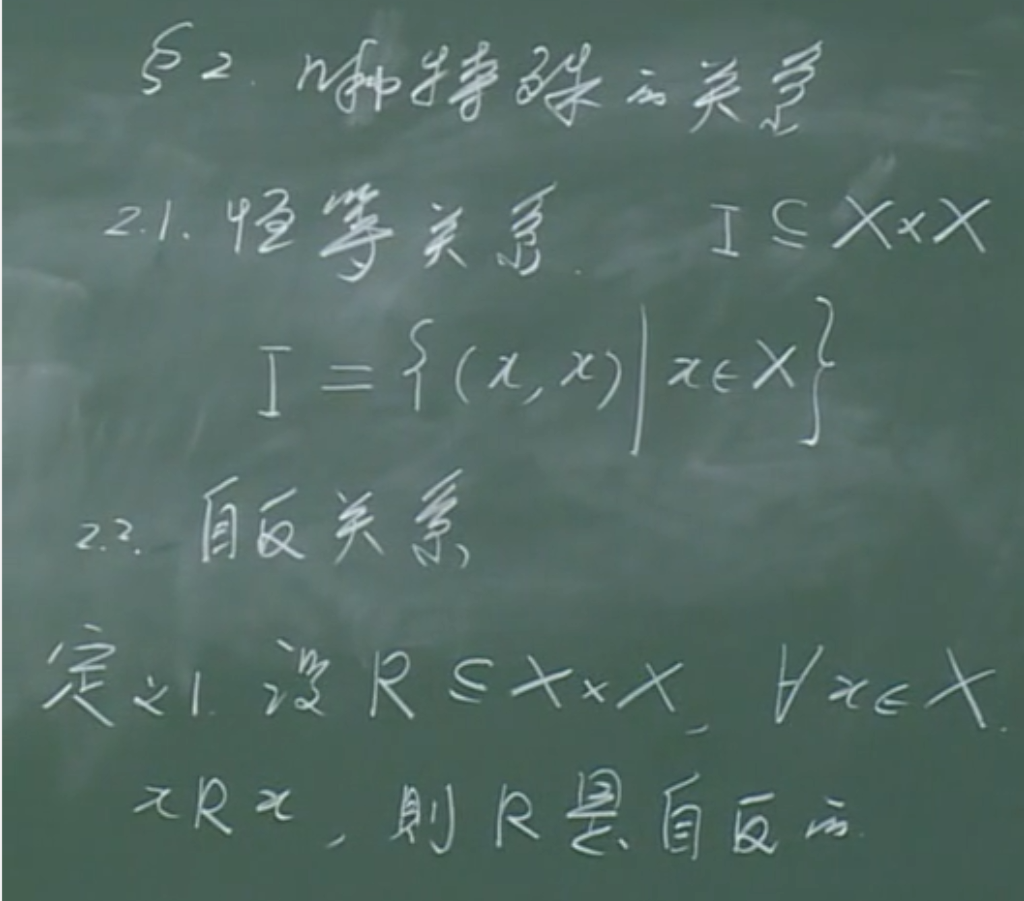 §2. 几种特殊的关系
2.1. 恒等关系. I ⊆ X×X
I = {(x,x)|x∈X}
2.2. 自反关系
定义1. 设 R ⊆ X×X, ∀x∈X.
xRx, 則 R 是自反的.